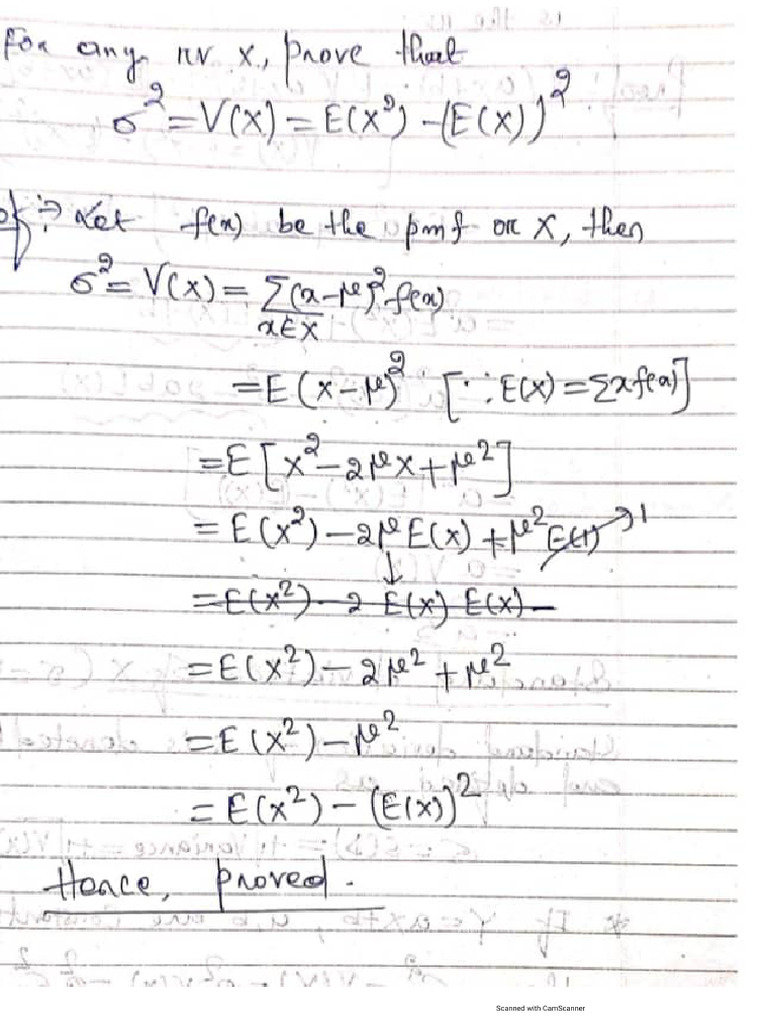 For any rv X, prove that
σ² = V(X) = E(X²) - (E(X))²
Let f(x) be the pmf or X, then
σ² = V(X) = Σ(x-μ)² f(x)
x∈X
= E(X-μ)² [∵ E(X) = Σxf(x)]
= E[X² - 2μX + μ²]
= E(X²) - 2μE(X) + μ² E(1) → 1
↓
= E(X²) - 2 E(X) E(X) -
= E(X²) - 2μ² + μ²
= E(X²) - μ²
= E(X²) - (E(X))²
Hence, proved.
Scanned with CamScanner